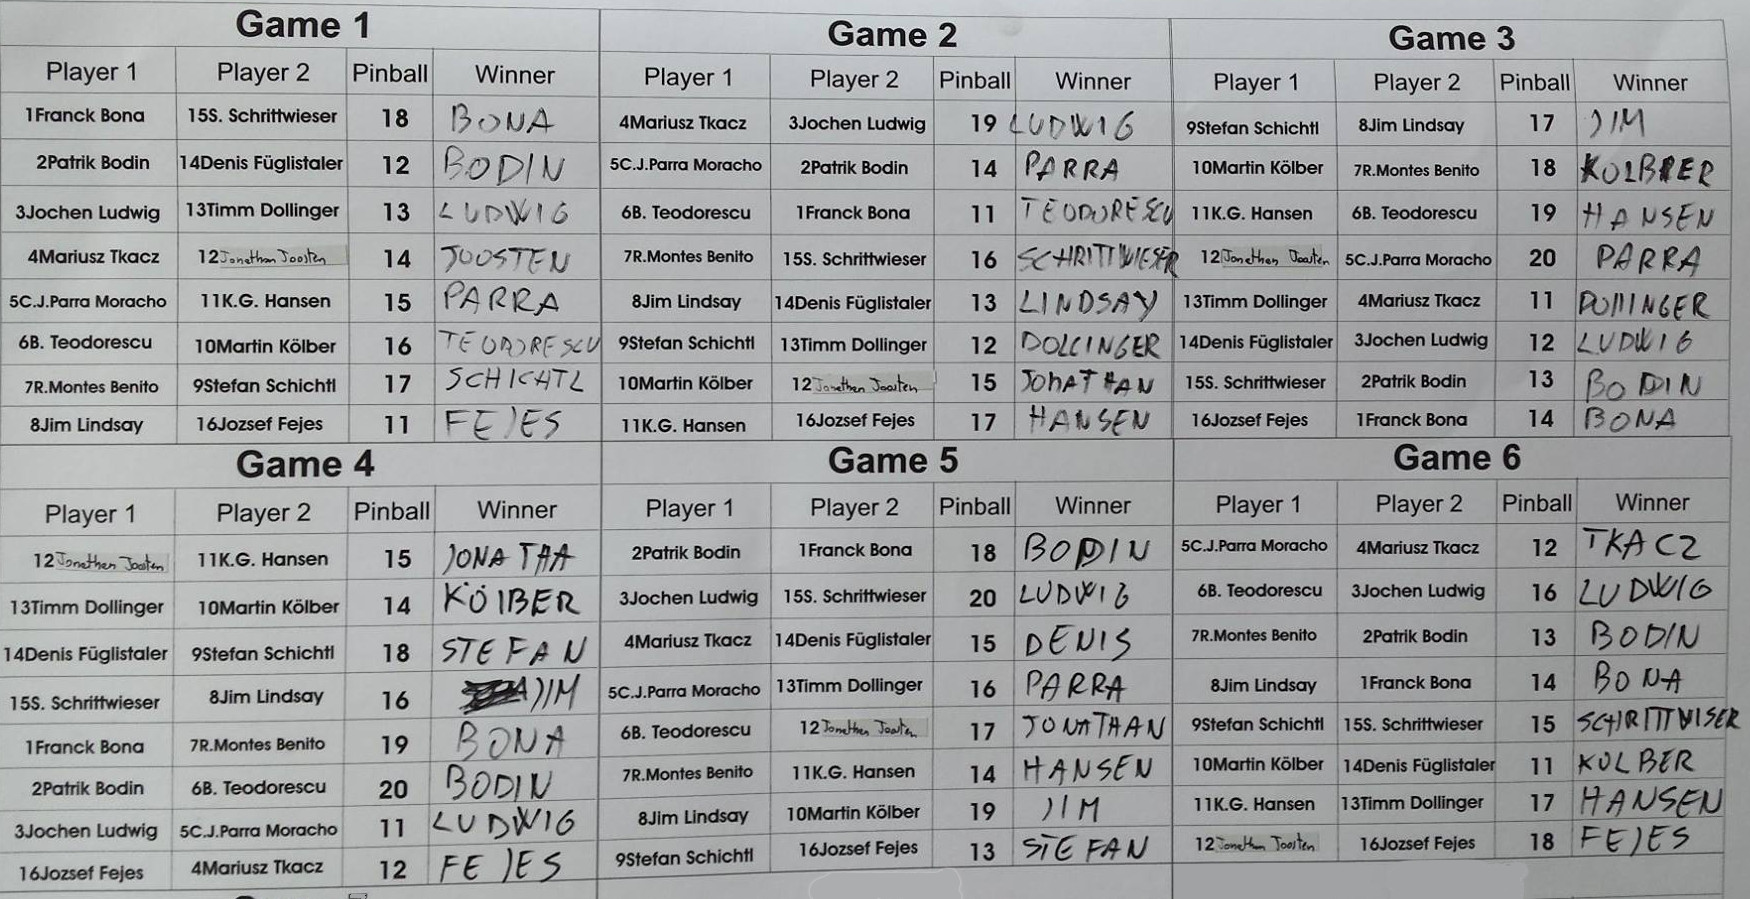 Game 1
Player 1 Player 2 Pinball Winner
1Franck Bona 15S. Schrittwieser 18 BONA
2Patrik Bodin 14Denis Füglistaler 12 BODIN
3Jochen Ludwig 13Timm Dollinger 13 LUDWIG
4Mariusz Tkacz 12Jonathan Joosten 14 JOOSTEN
5C.J.Parra Moracho 11K.G. Hansen 15 PARRA
6B. Teodorescu 10Martin Kölber 16 TEODORESCU
7R.Montes Benito 9Stefan Schichtl 17 SCHICHTL
8Jim Lindsay 16Jozsef Fejes 11 FEJES
Game 2
Player 1 Player 2 Pinball Winner
4Mariusz Tkacz 3Jochen Ludwig 19 LUDWIG
5C.J.Parra Moracho 2Patrik Bodin 14 PARRA
6B. Teodorescu 1Franck Bona 11 TEODORESCU
7R.Montes Benito 15S. Schrittwieser 16 SCHRITTWIESER
8Jim Lindsay 14Denis Füglistaler 13 LINDSAY
9Stefan Schichtl 13Timm Dollinger 12 DOLLINGER
10Martin Kölber 12Jonathan Joosten 15 JONATHAN
11K.G. Hansen 16Jozsef Fejes 17 HANSEN
Game 3
Player 1 Player 2 Pinball Winner
9Stefan Schichtl 8Jim Lindsay 17 JIM
10Martin Kölber 7R.Montes Benito 18 KOLBER
11K.G. Hansen 6B. Teodorescu 19 HANSEN
12Jonathan Joosten 5C.J.Parra Moracho 20 PARRA
13Timm Dollinger 4Mariusz Tkacz 11 DOLLINGER
14Denis Füglistaler 3Jochen Ludwig 12 LUDWIG
15S. Schrittwieser 2Patrik Bodin 13 BODIN
16Jozsef Fejes 1Franck Bona 14 BONA
Game 4
Player 1 Player 2 Pinball Winner
12Jonathan Joosten 11K.G. Hansen 15 JONATHA
13Timm Dollinger 10Martin Kölber 14 KÖLBER
14Denis Füglistaler 9Stefan Schichtl 18 STEFAN
15S. Schrittwieser 8Jim Lindsay 16 JIM
1Franck Bona 7R.Montes Benito 19 BONA
2Patrik Bodin 6B. Teodorescu 20 BODIN
3Jochen Ludwig 5C.J.Parra Moracho 11 LUDWIG
16Jozsef Fejes 4Mariusz Tkacz 12 FEJES
Game 5
Player 1 Player 2 Pinball Winner
2Patrik Bodin 1Franck Bona 18 BODIN
3Jochen Ludwig 15S. Schrittwieser 20 LUDWIG
4Mariusz Tkacz 14Denis Füglistaler 15 DENIS
5C.J.Parra Moracho 13Timm Dollinger 16 PARRA
6B. Teodorescu 12Jonathan Joosten 17 JONATHAN
7R.Montes Benito 11K.G. Hansen 14 HANSEN
8Jim Lindsay 10Martin Kölber 19 JIM
9Stefan Schichtl 16Jozsef Fejes 13 STEFAN
Game 6
Player 1 Player 2 Pinball Winner
5C.J.Parra Moracho 4Mariusz Tkacz 12 TKACZ
6B. Teodorescu 3Jochen Ludwig 16 LUDWIG
7R.Montes Benito 2Patrik Bodin 13 BODIN
8Jim Lindsay 1Franck Bona 14 BONA
9Stefan Schichtl 15S. Schrittwieser 15 SCHRITTWISER
10Martin Kölber 14Denis Füglistaler 11 KOLBER
11K.G. Hansen 13Timm Dollinger 17 HANSEN
12Jonathan Joosten 16Jozsef Fejes 18 FEJES